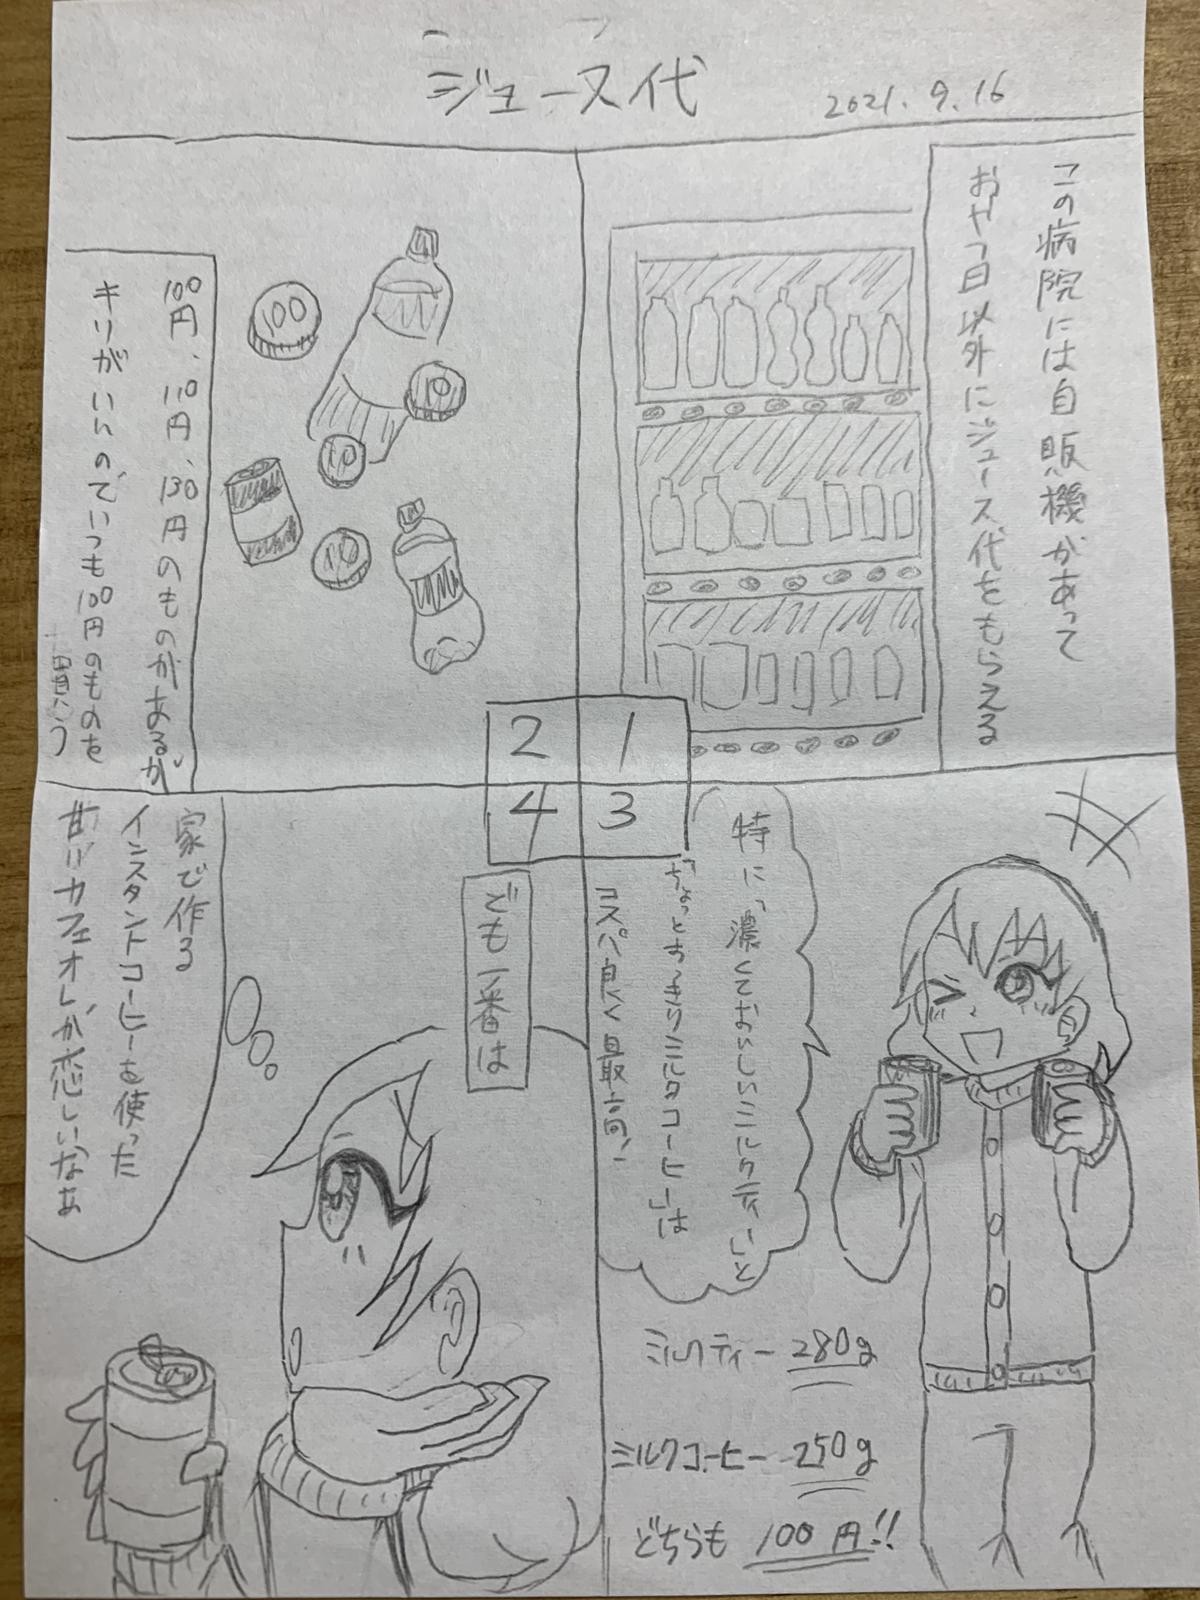 ジュース代
2021.9.16
この病院には自販機があって
おやつ日以外にジュース代をもらえる
1
100
10
10
10
100円、110円、130円のものがあるが
キリがいいのでいつも100円のものを
買う
2
3
特に「濃くておいしいミルクティー」と
「ちょっとおっきりミルクコーヒー」は
コスパ良く最高!
ミルクティー 280g
ミルクコーヒー 250g
どちらも 100円!!
4
でも一番は
家で作る
インスタントコーヒーを使った
甘いカフェオレが恋しいなぁ